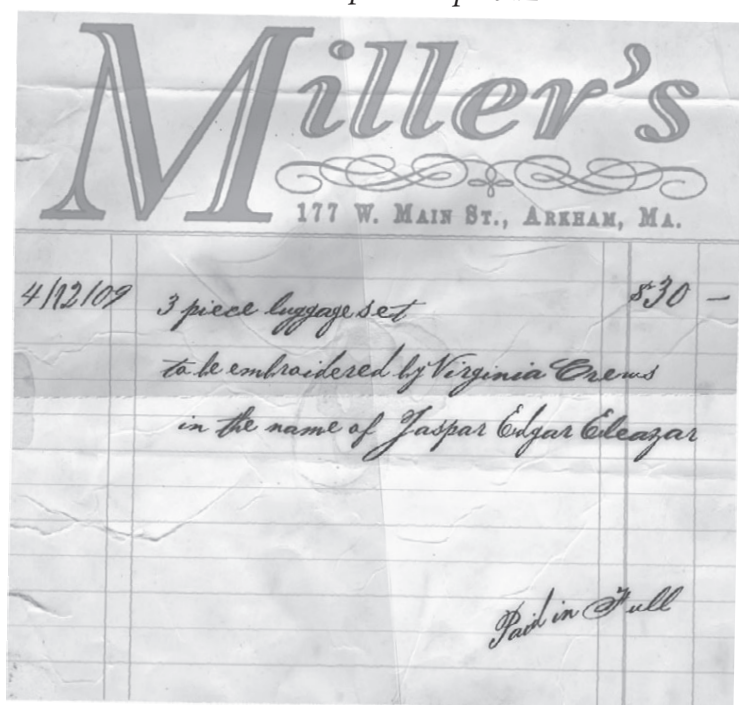 Miller's
177 W. Main St., Arkham, Ma.
4/12/09 3 piece luggage set $30 —
to be embroidered by Virginia Crews
in the name of Jaspar Edgar Eleazar
Paid in Full